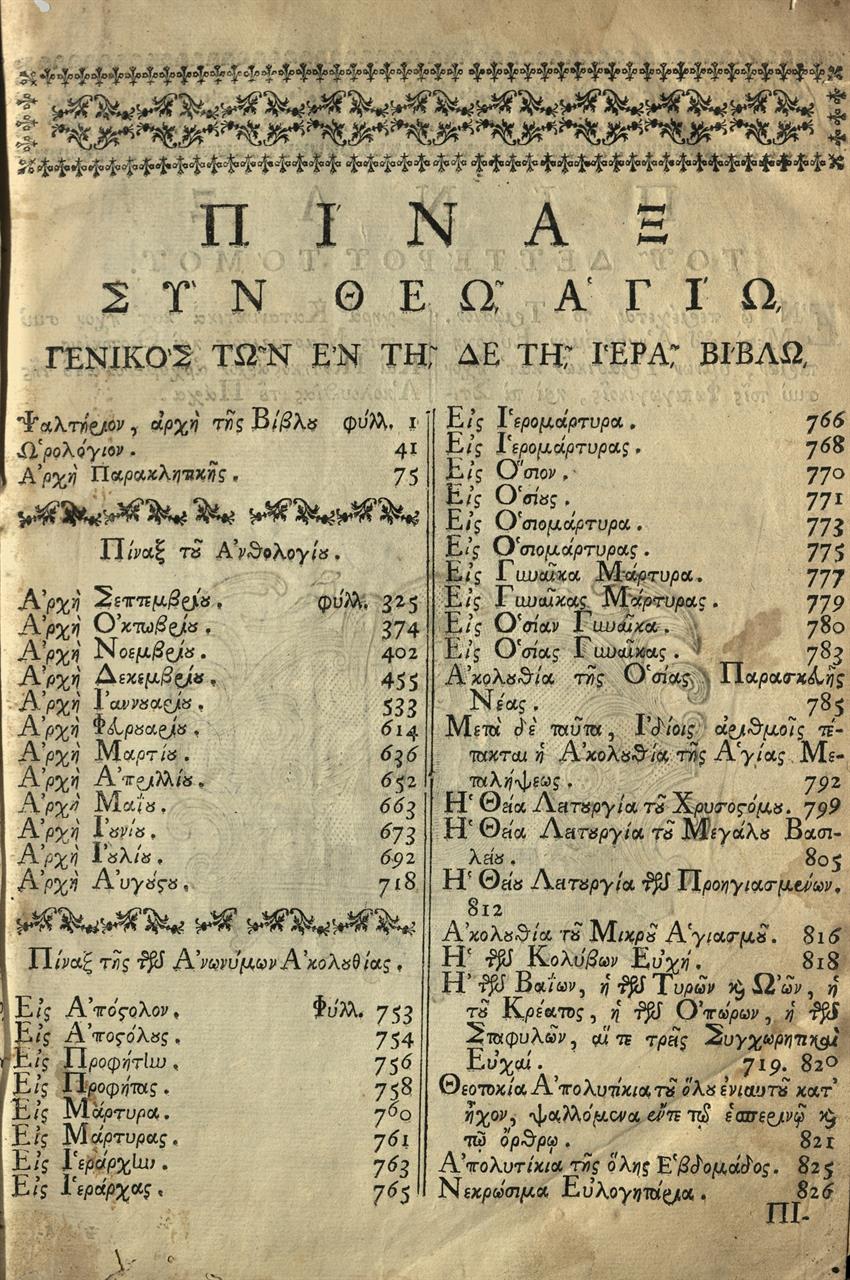 ΠΙΝΑΞ
ΣΥ̓Ν ΘΕῼ͂ ἍΓΙΏͅ,
ΓΕΝΙΚῸΣ ΤΩ͂Ν ἜΝ Τῌ͂ ΔΕ Τῌ͂ ἽΕΡᾼ͂ ΒΊΒΛῼ,
Ψαλτήριον, ἀρχὴ τῆς Βίβλȣ φύλλ. 1
Ὡρολόγιον. 41
Ἀρχὴ Παρακλητικῆς. 75
Πίναξ τȣ͂ Ἀνθολογίȣ.
Ἀρχὴ Σεπτεμβρίȣ. φύλλ. 325
Ἀρχὴ Ὀκτωβρίȣ. 374
Ἀρχὴ Νοεμβρίȣ. 402
Ἀρχὴ Δεκεμβρίȣ. 455
Ἀρχὴ Ἰαννȣαρίȣ. 533
Ἀρχὴ Φευρȣαρίȣ. 614
Ἀρχὴ Μαρτίȣ. 636
Ἀρχὴ Ἀπριλλίȣ. 652
Ἀρχὴ Μαΐȣ. 663
Ἀρχὴ Ἰȣνίȣ. 673
Ἀρχὴ Ἰȣλίȣ. 692
Ἀρχὴ Αὐγύϛȣ. 718
Πίναξ τῆς τῶν Ἀνωνύμων Ἀκολȣθίας.
Εἰς Ἀπόϛολον. Φύλλ. 753
Εἰς Ἀποϛόλȣς. 754
Εἰς Προφήτην. 756
Εἰς Προφήτας. 758
Εἰς Μάρτυρα. 760
Εἰς Μάρτυρας. 761
Εἰς Ἱεράρχην. 763
Εἰς Ἱεράρχας. 765
Εἰς Ἱερομάρτυρα. 766
Εἰς Ἱερομάρτυρας. 768
Εἰς Ὅσιον. 770
Εἰς Ὁσίȣς. 771
Εἰς Ὁσιομάρτυρα. 773
Εἰς Ὁσιομάρτυρας. 775
Εἰς Γυναῖκα Μάρτυρα. 777
Εἰς Γυναῖκας Μάρτυρας. 779
Εἰς Ὁσίαν Γυναῖκα. 780
Εἰς Ὁσίας Γυναῖκας. 783
Ἀκολȣθία τῆς Ὁσίας Παρασκευῆς
Νέας. 785
Μετὰ δὲ ταῦτα, Ἰδίοις ἀριθμοῖς τέ-
τακται ἡ Ἀκολȣθία τῆς Ἁγίας Με-
ταλήψεως. 792
Ἡ Θεία Λειτȣργία τȣ͂ Χρυσοϛόμȣ. 799
Ἡ Θεία Λειτȣργία τȣ͂ Μεγάλȣ Βασι-
λείȣ. 805
Ἡ Θεία Λειτȣργία τῶν Προηγιασμένων.
812
Ἀκολȣθία τȣ͂ Μικρȣ͂ Ἁγιασμȣ͂. 816
Ἡ τῶν Κολύβων Εὐχή. 818
Ἡ τῶν Βαΐων, ἡ τῶν Τυρῶν ϗ Ὠῶν, ἡ
τȣ͂ Κρέατος, ἡ τῶν Ὀπώρων, ἡ τῶν
Σταφυλῶν, αἵ τε τρεῖς Συγχωρητικαὶ
Εὐχαί. 719. 820
Θεοτοκία Ἀπολυτίκια τȣ͂ ὅλȣ ἐνιαυτȣ͂ κατ᾽
ἦχον, ψαλλόμενα ἔντε τῷ ἑσπερινῷ ϗ
τῷ ὄρθρῳ. 821
Ἀπολυτίκια τῆς ὅλης Ἑβδομάδος. 825
Νεκρώσιμα Εὐλογητάρια. 826
ΠΙ-